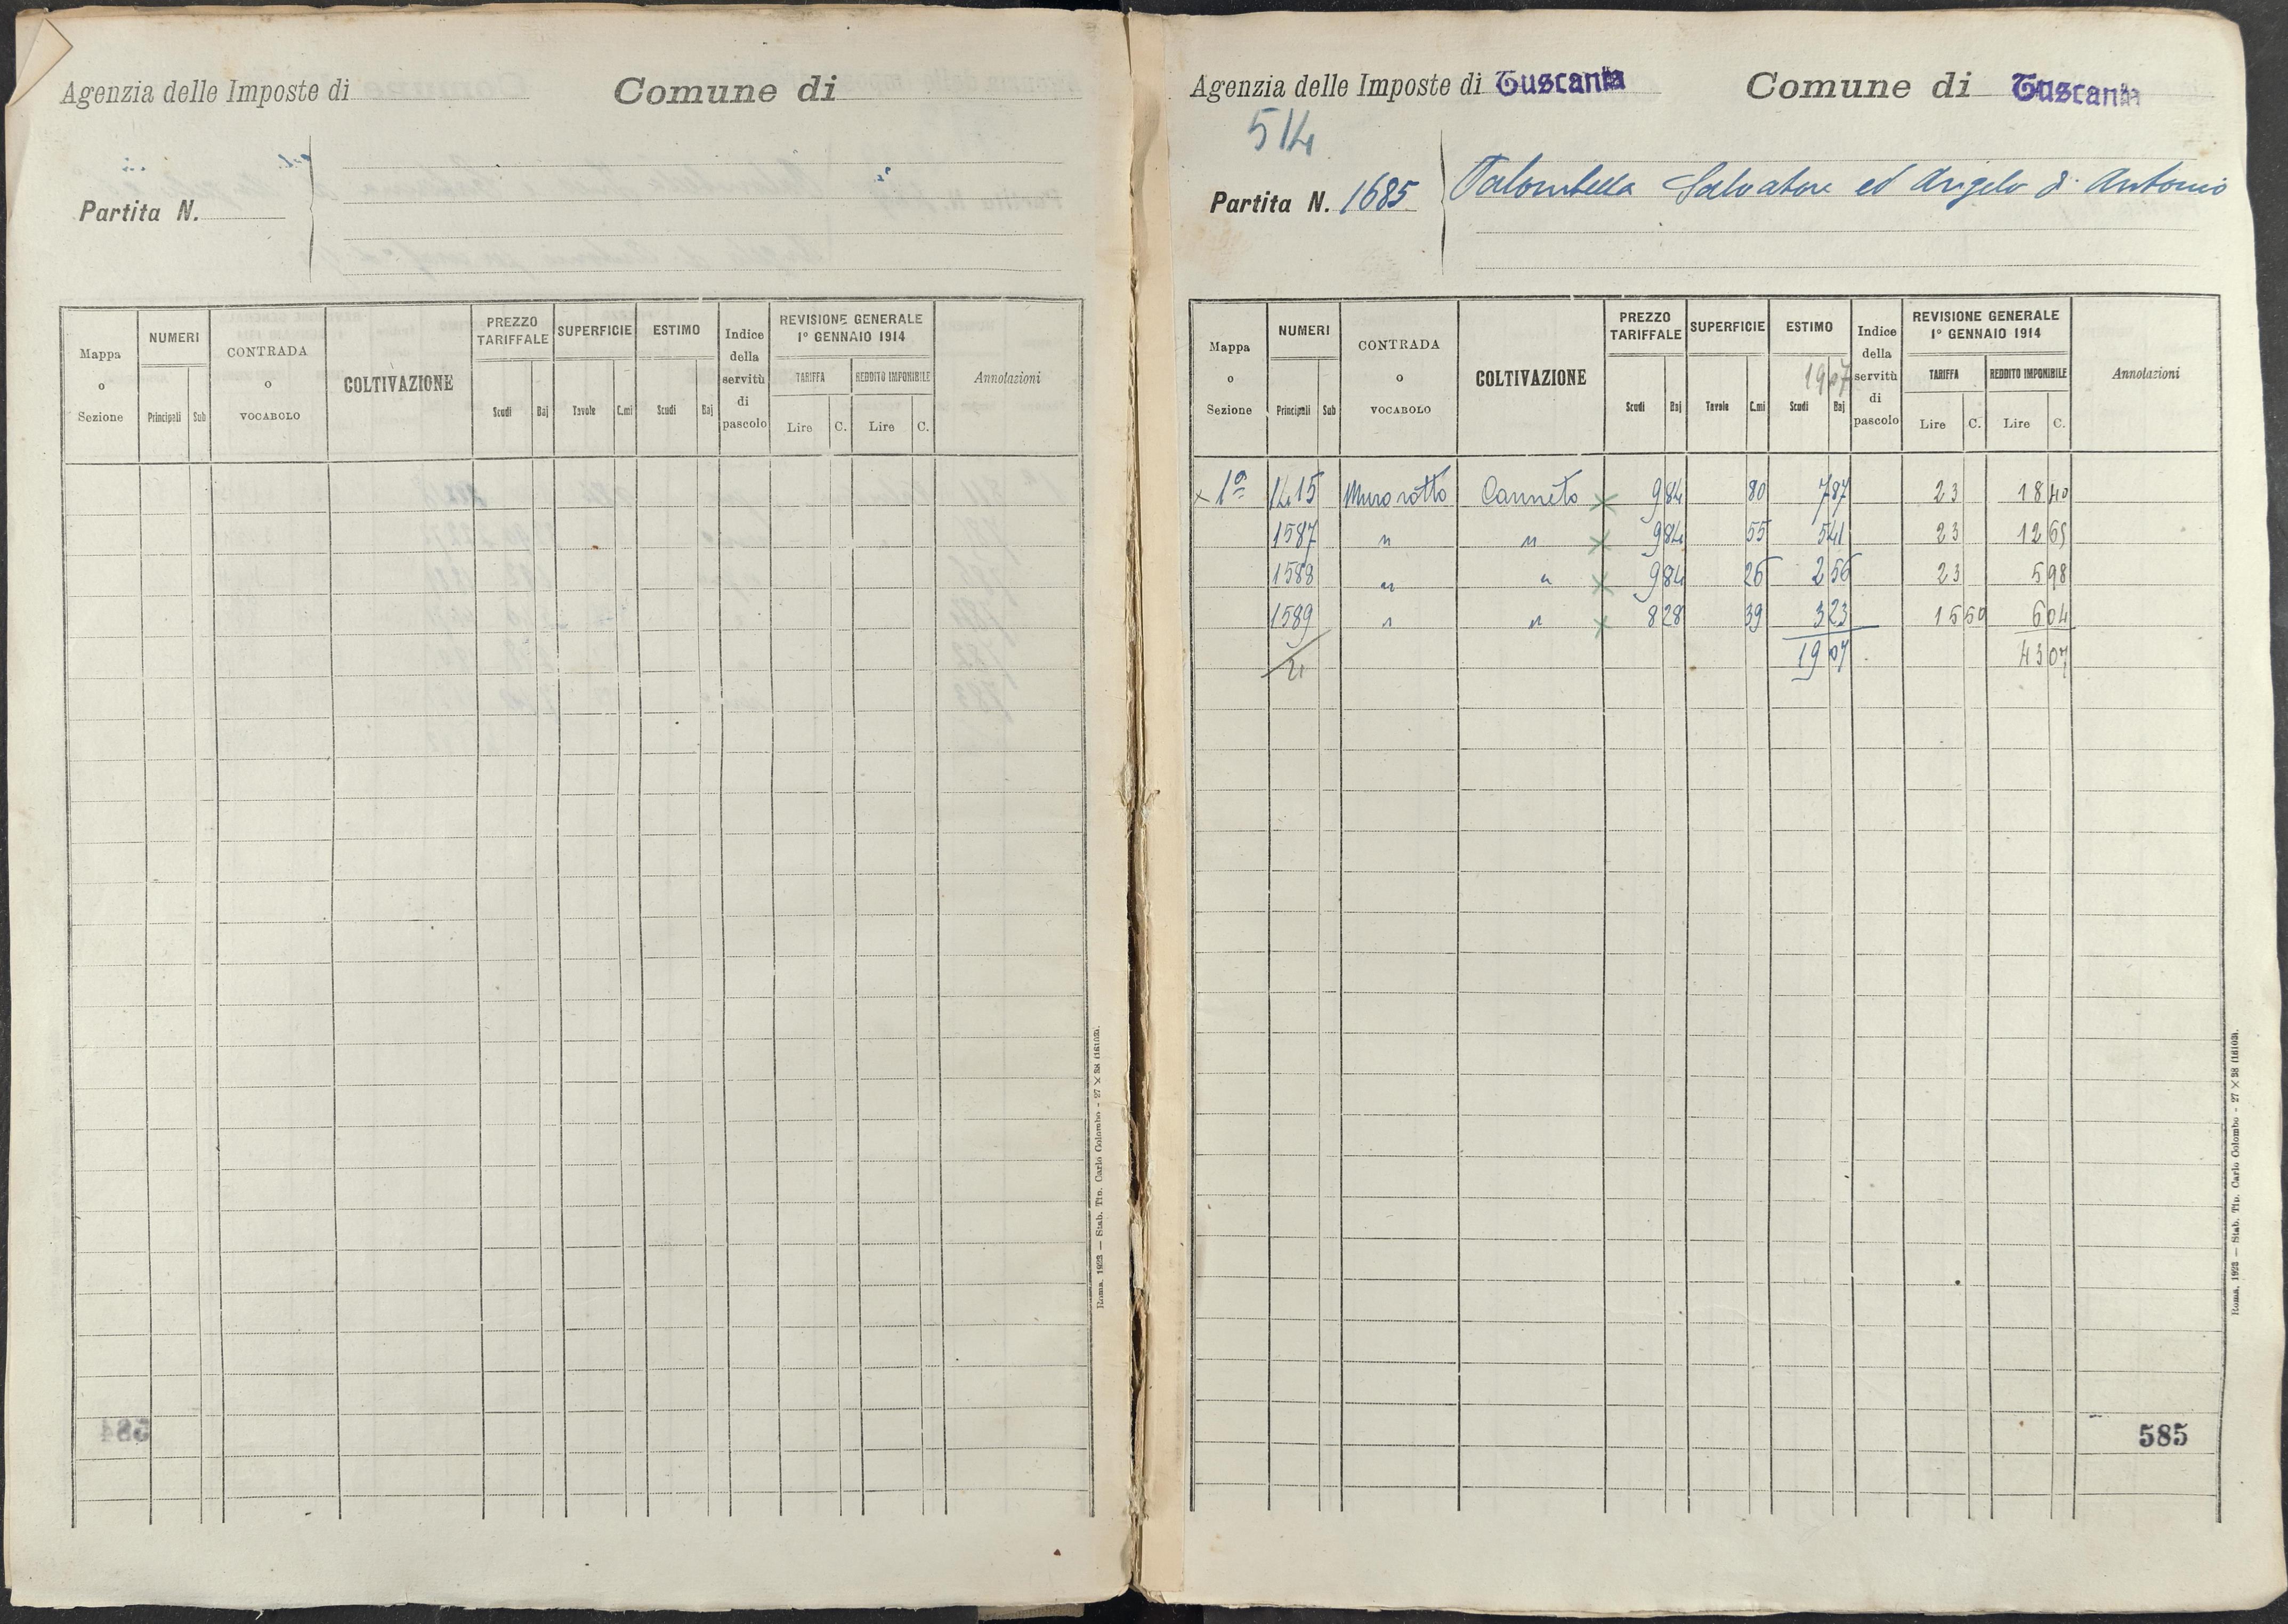 Agenzia delle Imposte di
Comune di
Partita N.
Mappa o Sezione
NUMERI
Principali Sub
CONTRADA o VOCABOLO
COLTIVAZIONE
PREZZO TARIFFALE
Scudi Baj
SUPERFICIE
Tavole C.mi
ESTIMO
Scudi Baj
Indice della servitù di pascolo
REVISIONE GENERALE
1° GENNAIO 1914
TARIFFA
Lire C.
REDDITO IMPONIBILE
Lire C.
Annotazioni
584
Roma, 1923 — Stab. Tip. Carlo Colombo - 27 × 38 (16103).
Agenzia delle Imposte di Tuscania
Comune di Tuscania
514
Partita N. 1685
Palombella Salvatore ed Angelo di Antonio
Mappa o Sezione
NUMERI
Principali Sub
CONTRADA o VOCABOLO
COLTIVAZIONE
PREZZO TARIFFALE
Scudi Baj
SUPERFICIE
Tavole C.mi
ESTIMO
1907
Scudi Baj
Indice della servitù di pascolo
REVISIONE GENERALE
1° GENNAIO 1914
TARIFFA
Lire C.
REDDITO IMPONIBILE
Lire C.
Annotazioni
x 1a 1415 Muro rotto Canneto x 9 84 80 7 87 23 18 40
1587 " " x 9 84 55 5 41 23 12 65
1588 " " x 9 84 26 2 56 23 5 98
1589 " " x 8 28 39 3 23 15 50 6 04
4 19 07 43 07
585
Roma, 1923 — Stab. Tip. Carlo Colombo - 27 × 38 (16103).